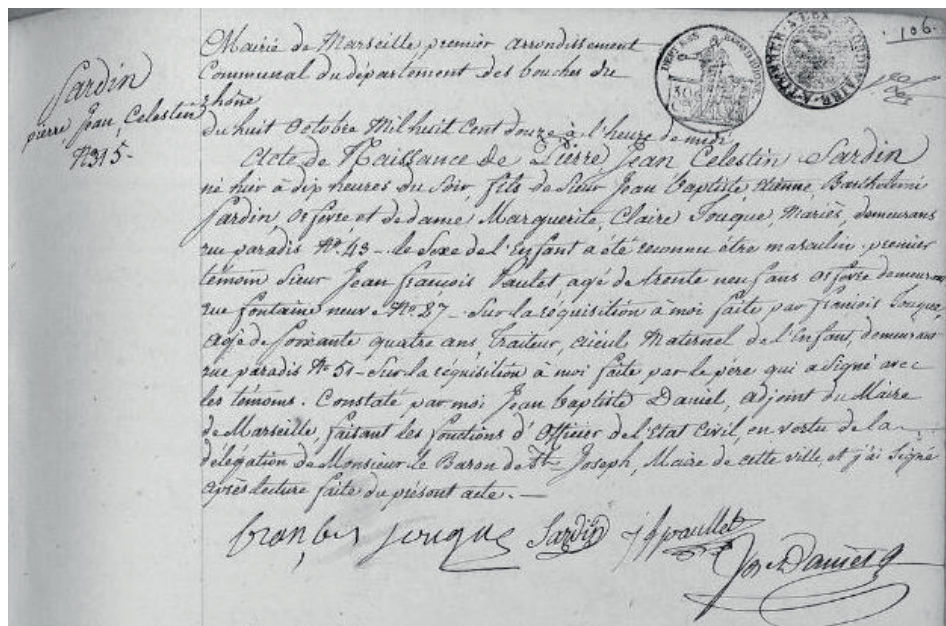 106.
Mairie de Marseille premier arrondissement
Communal du département des bouches du
rhône
Sardin
pierre Jean, Celestin
N315-
Du huit Octobre Mil huit Cent douze à l'heure de midi
Acte de Naissance de Pierre Jean Celestin Sardin
né hier à dix heures du Soir, fils de Sieur Jean baptiste étienne Barthelemi
Sardin orfévre et de dame Marguerite, Claire Jouque, Mariés, demeurans
rue paradis No. 43 - le Sexe de l'Enfant a été reconnu être masculin. premier
témoin Sieur Jean françois Paulet agé de trente neuf ans orfévre demeurant
rue fontaine neuve No. 27 - Sur la réquisition à moi faite par françois Jouque
agé de Soixante quatre ans Traiteur, aieul Maternel de l'Enfant, demeurant
rue paradis No 51 - Sur la réquisition à moi faite par le père qui a Signé avec
les témoins. Constaté par moi Jean baptiste Daniel, adjoint du Maire
de Marseille, faisant les fonctions d'Officier de l'Etat Civil, en vertu de la
délégation de Monsieur le Baron de St. Joseph, Maire de cette ville, et j'ai Signé
après lecture faite du présent acte. -
françois jouque Sardin paullet Daniel